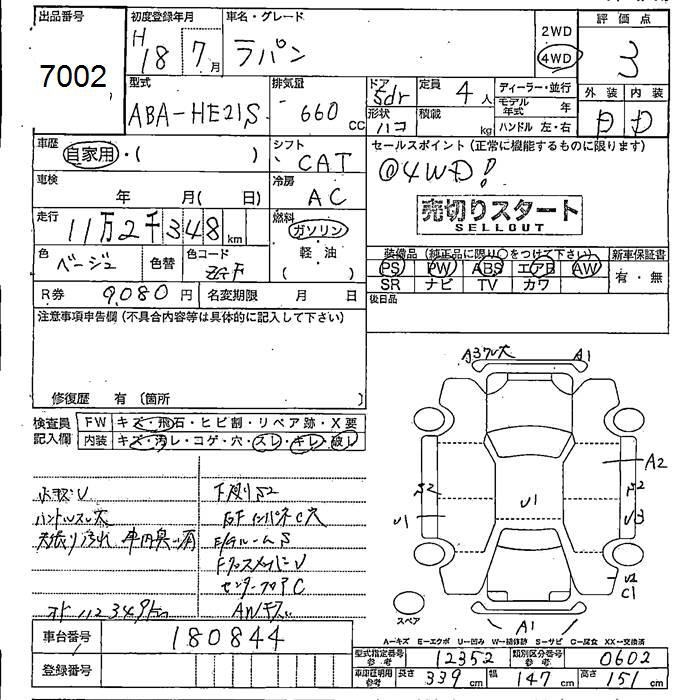 出品番号 初度登録年月 車名・グレード 評価点
7002 H18 7月 ラパン 2WD 4WD 3
型式 排気量 ドア 定員 ディーラー・並行 外装 内装
ABA-HE21S 660 CC 5dr 4人 モデル年式 年 D D
形状 ハコ 積載 kg ハンドル 左・右
車歴 シフト セールスポイント (正常に機能するものに限ります)
自家用・( ) CAT @4WD!
車検 冷房
年 月( 日) AC 売切りスタート
走行 燃料 SELLOUT
11万2千348km ガソリン
色 色替 色コード 軽油 装備品 (純正品に限り○をつけて下さい) 新車保証書
ベージュ ZGF ( ) PS PW ABS エアB AW 有・無
R券 9,080円 名変期限 月 日 SR ナビ TV カワ
注意事項申告欄 (不具合内容等は具体的に記入して下さい) 後日品
A3 A1
修復歴 有 (箇所
検査員 FW キズ・飛石・ヒビ割・リペア跡・X要
記入欄 内装 キズ・汚レ・コゲ・穴・スレ・キレ・破レ
A2
小キズU 下廻りS2 S2 S2
ハンドルスレ大 U1 U1 U3
天張り汚れ 車内臭い有
E/GルームS
FクロスメンバーU U2
センターフロアC C1
オド 112349km AWキズ スペア A1
車台番号 180844 A-キズ E-エクボ U-凹み W-補修跡 S-サビ C-腐食 XX-交換済
型式指定番号 参考 12352 類別区分番号 参考 0602
登録番号 車庫証明用 参考 長さ 339cm 幅 147cm 高さ 151cm